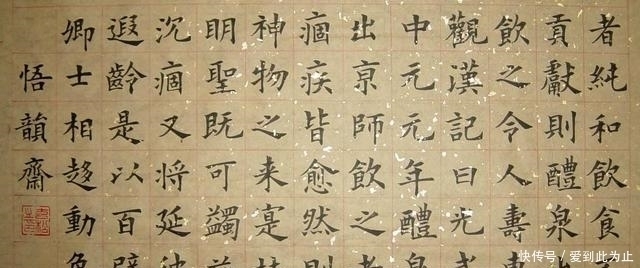 者純和飲食
貢獻則醴泉
飲之令人壽
觀漢記曰光
中元元年醴
出京師飲之
痼疾皆愈然
神物之来寔
明聖既可蠲
沉痼又将延
遐齡是以百
卿士相趍動
悟韻齋
快传号/爱到此为止